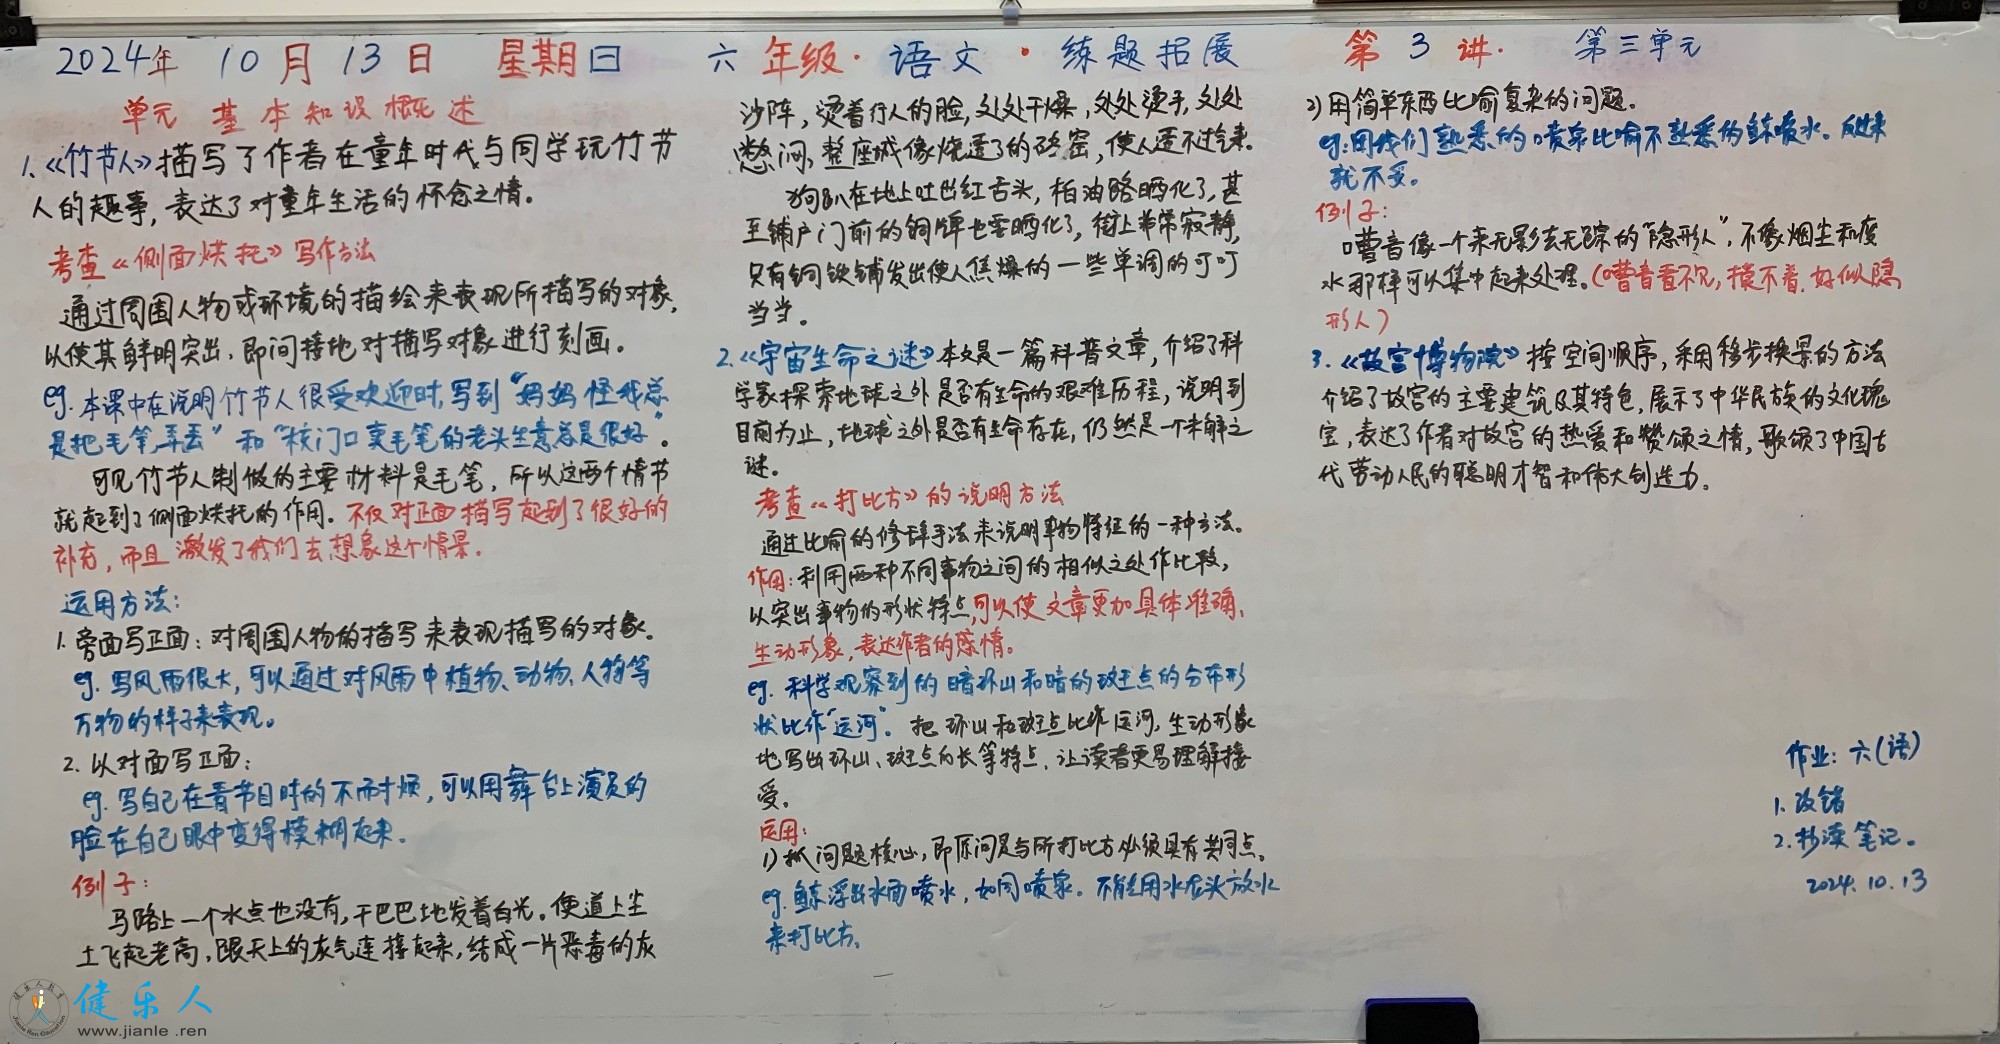 2024年 10月13日 星期日 六年级·语文·练题拓展 第3讲· 第三单元
单元基本知识概述
1.《竹节人》描写了作者在童年时代与同学玩竹节
人的趣事，表达了对童年生活的怀念之情。
考查《侧面烘托》写作方法
通过周围人物或环境的描绘来表现所描写的对象，
以使其鲜明突出，即间接地对描写对象进行刻画。
eg.本课中在说明竹节人很受欢迎时，写到“妈妈怪我总
是把毛笔弄丢”和“校门口卖毛笔的老头生意总是很好”。
可见竹节人制做的主要材料是毛笔，所以这两个情节
就起到了侧面烘托的作用。不仅对正面描写起到了很好的
补充，而且激发了我们去想象这个情景。
运用方法：
1.旁面写正面：对周围人物的描写来表现描写的对象。
eg.写风雨很大，可以通过对风雨中植物、动物、人物等
万物的样子来表现。
2.以对面写正面：
eg.写自己在看节目时的不耐烦，可以用舞台上演员的
脸在自己眼中变得模糊起来。
例子：
马路上一个水点也没有，干巴巴地发着白光。便道上尘
土飞起老高，跟天上的灰气连接起来，结成一片恶毒的灰
沙阵，烫着行人的脸，处处干燥，处处烫手，处处
憋闷，整座城像烧透了的砖窑，使人透不过气来。
狗趴在地上吐出红舌头，柏油路晒化了，甚
至铺户门前的铜牌也要晒化了，街上非常寂静，
只有铜铁铺发出使人焦燥的一些单调的叮叮
当当。
2.《宇宙生命之谜》本文是一篇科普文章，介绍了科
学家探索地球之外是否有生命的艰难历程，说明到
目前为止，地球之外是否有生命存在，仍然是一个未解之
谜。
考查《打比方》的说明方法
通过比喻的修辞手法来说明事物特征的一种方法。
作用：利用两种不同事物之间的相似之处作比较，
以突出事物的形状特点，可以使文章更加具体准确、
生动形象，表达作者的感情。
eg.科学观察到的暗环山和暗的斑点的分布形
状比作“运河”。把环山和斑点比作运河，生动形象
地写出环山、斑点的长等特点，让读者更易理解接
受。
运用：
1)抓问题核心，即原问题与所打比方必须具有共同点。
eg.鲸浮出水面喷水，如同喷泉。不能用水龙头放水
来打比方。
2)用简单东西比喻复杂的问题。
eg:用我们熟悉的喷泉比喻不熟悉的鲸喷水。反过来
就不妥。
例子：
嘈音像一个来无影去无踪的“隐形人”，不像烟尘和废
水那样可以集中起来处理。（嘈音看不见，摸不着，好似隐
形人）
3.《故宫博物院》按空间顺序，采用移步换景的方法
介绍了故宫的主要建筑及其特色，展示了中华民族的文化瑰
宝，表达了作者对故宫的热爱和赞颂之情，歌颂了中国古
代劳动人民的聪明才智和伟大创造力。
作业：六(语)
1.改错
2.抄读笔记。
2024.10.13
健乐人
www.jianle .ren